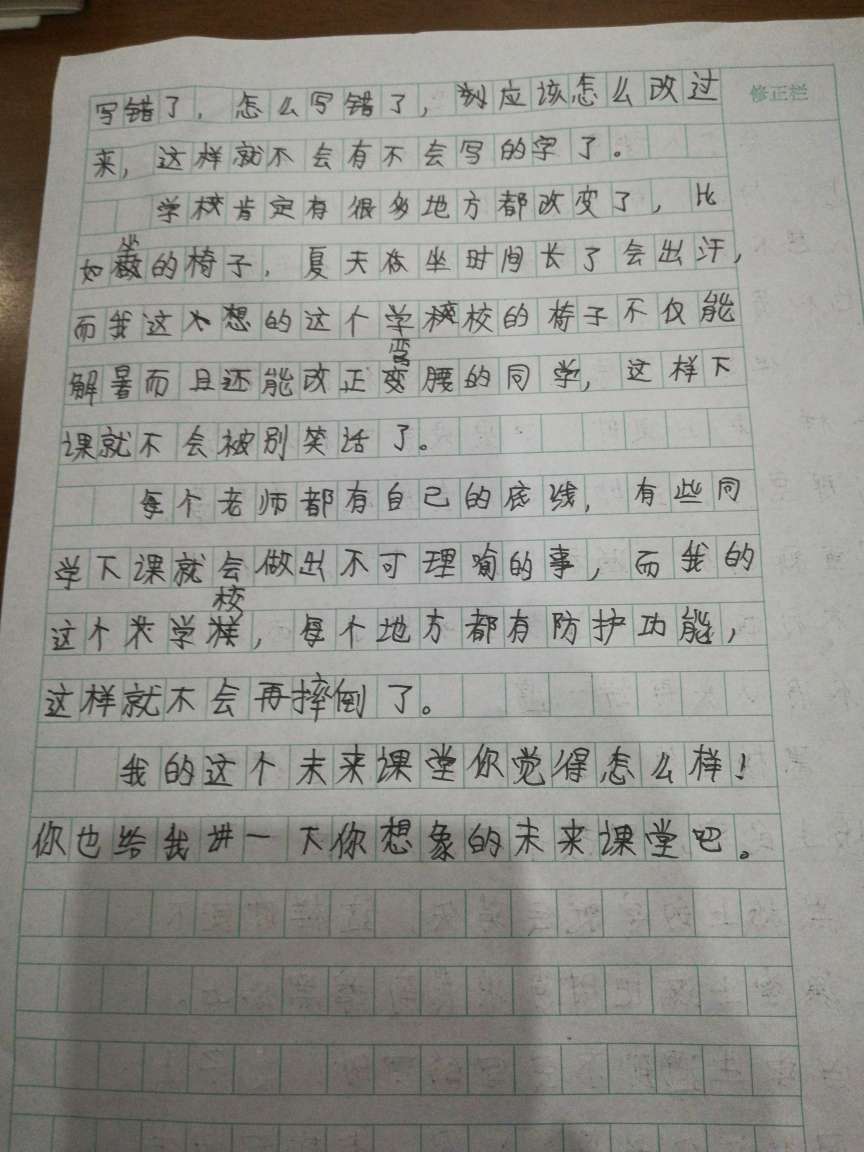 修正栏
写错了，怎么写错了，到应该怎么改过
来，这样就不会有不会写的字了。
学校肯定有很多地方都改变了，比
如坐的椅子，夏天在坐时间长了会出汗，
而我这个想的这个学校的椅子不仅能
解暑而且还能改正弯腰的同学，这样下
课就不会被别笑话了。
每个老师都有自己的底线，有些同
学下课就会做出不可理喻的事，而我的
这个学校，每个地方都有防护功能，
这样就不会再摔倒了。
我的这个未来课堂你觉得怎么样！
你也给我讲一下你想象的未来课堂吧。